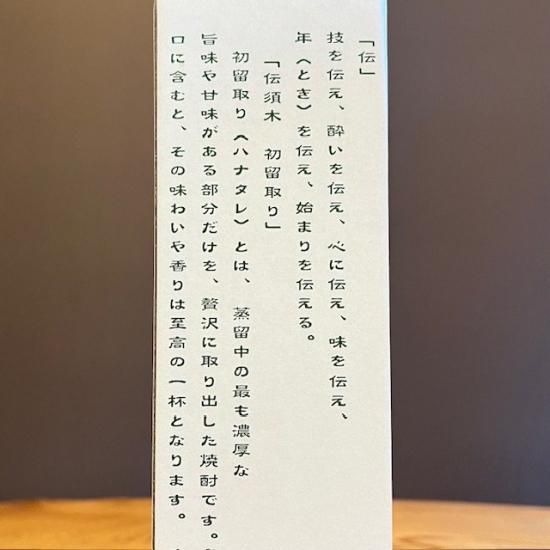 「伝」
技を伝え、酔いを伝え、心に伝え、味を伝え、
年（とき）を伝え、始まりを伝える。
「伝須木　初留取り」
初留取り（ハナタレ）とは、蒸留中の最も濃厚な
旨味や甘味がある部分だけを、贅沢に取り出した焼酎です。
口に含むと、その味わいや香りは至高の一杯となります。